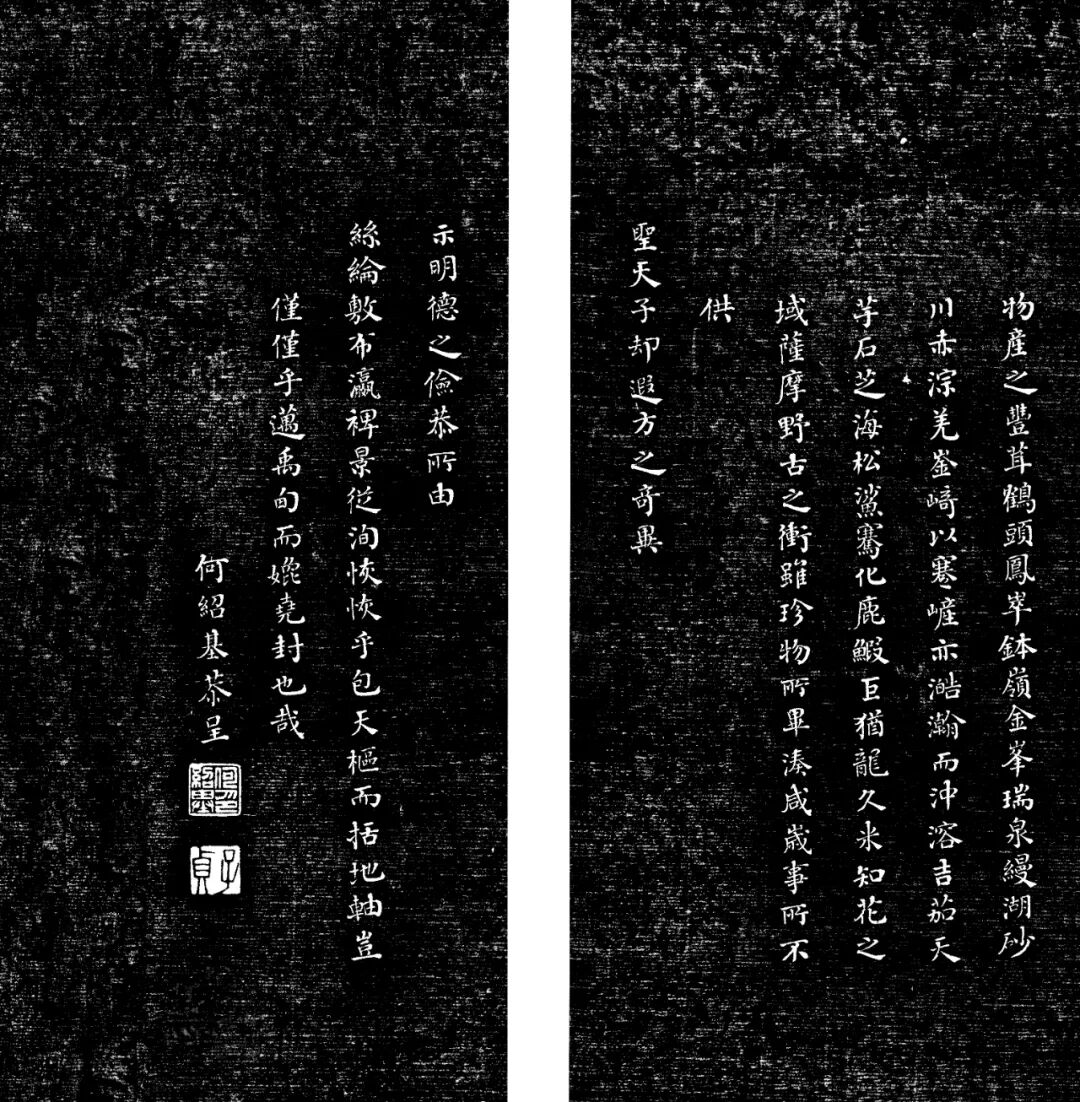 物産之豐茸鶴頭鳳崒鉢嶺金峯瑞泉縵湖砂
川赤淙羌崟﨑以蹇嵼亦澔瀚而沖溶吉茄天
芋石芝海松鯊騫化鹿鰕巨猶龍久米知花之
域薩摩野古之衝雖珍物所畢湊咸歲事所不
供
聖天子却遐方之奇異
示明德之儉恭所由
絲綸敷布瀛裨景從洵恢恢乎包天樞而括地軸豈
僅僅乎邁禹甸而媲堯封也哉
何紹基恭呈
何紹基
子貞